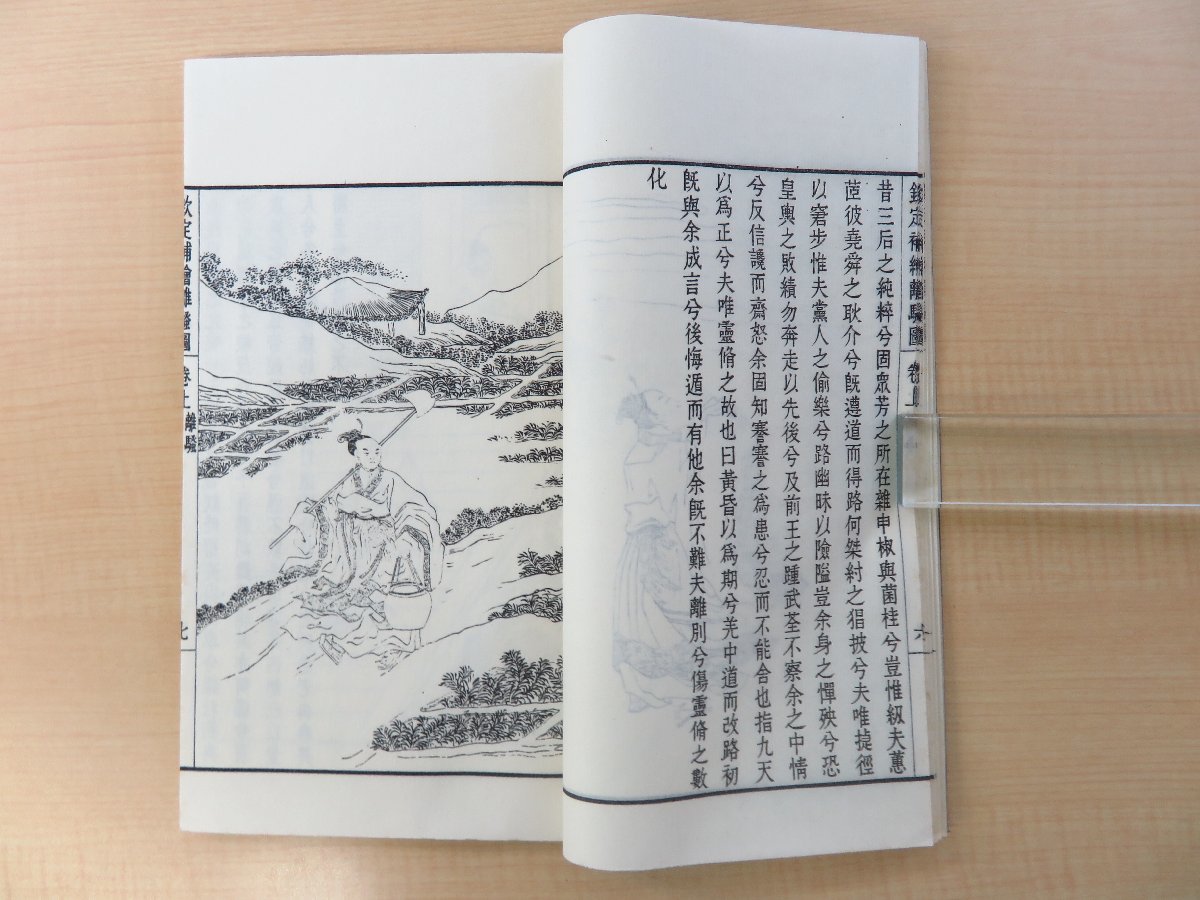 欽定補繪離騷圖 卷上 六
昔三后之純粹兮固衆芳之所在雜申椒與菌桂兮豈惟級夫蕙
茝彼堯舜之耿介兮既遵道而得路何桀紂之猖披兮夫唯捷徑
以窘步惟夫黨人之偷樂兮路幽昧以險隘豈余身之憚殃兮恐
皇輿之敗績勿奔走以先後兮及前王之踵武荃不察余之中情
兮反信讒而齋怒余固知謇謇之爲患兮忍而不能舍也指九天
以爲正兮夫唯靈脩之故也曰黃昏以爲期兮羌中道而改路初
既與余成言兮後悔遁而有他余既不難夫離別兮傷靈脩之數
化
欽定補繪離騷圖 卷上 離騷 七